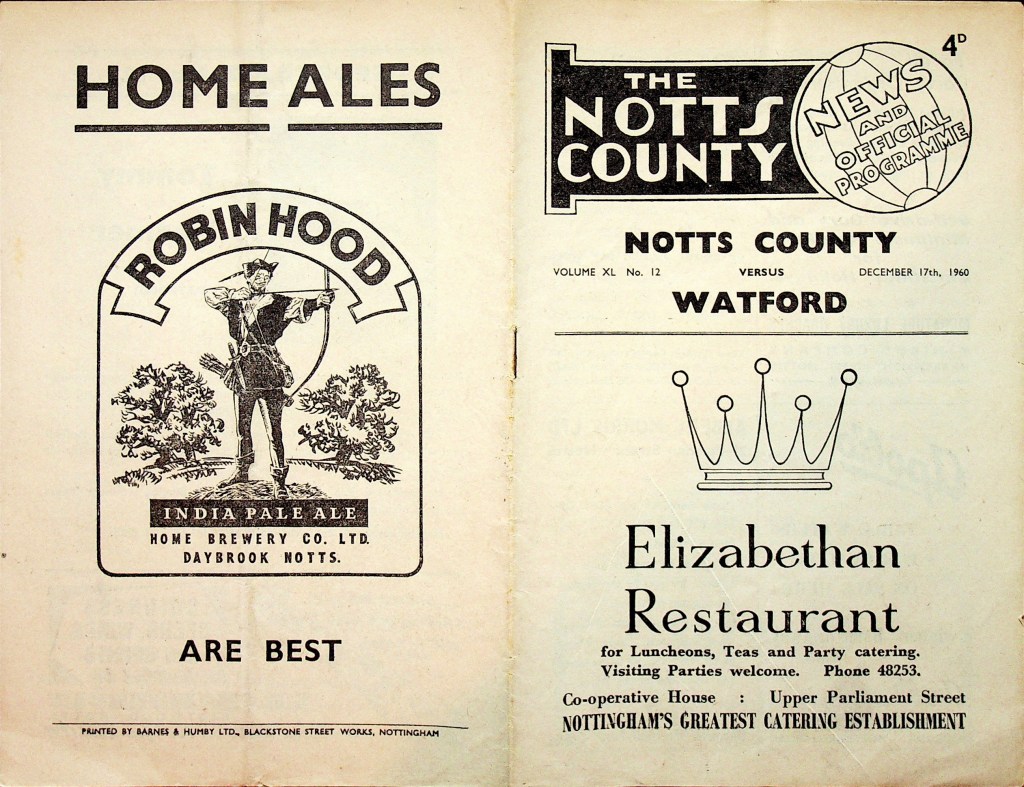 HOME ALES
ROBIN HOOD
INDIA PALE ALE
HOME BREWERY CO. LTD.
DAYBROOK NOTTS.
ARE BEST
PRINTED BY BARNES & HUMBY LTD., BLACKSTONE STREET WORKS, NOTTINGHAM
4D
THE
NOTTS
COUNTY
NEWS
AND
OFFICIAL
PROGRAMME
NOTTS COUNTY
VOLUME XL No. 12 VERSUS DECEMBER 17th, 1960
WATFORD
Elizabethan
Restaurant
for Luncheons, Teas and Party catering.
Visiting Parties welcome. Phone 48253.
Co-operative House : Upper Parliament Street
NOTTINGHAM'S GREATEST CATERING ESTABLISHMENT